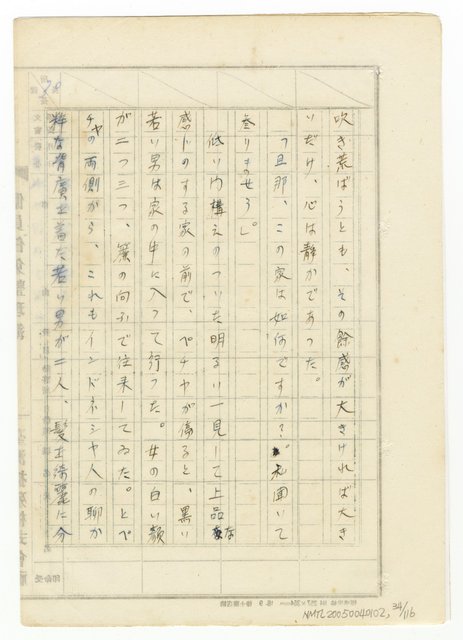 吹き荒ばうとも、その餘感が大きければ大き
いだけ、心は靜かであった。
「旦那、この家は如何ですか？私聞いて
参りませう」。
低い門構えのついた明るい一見して上品な
感じのする家の前で、ペチヤが停ると、黒い
若い男は家の中に入って行った。女の白い顔
が二つ三つ、簾の向ふで往来してゐた。とペ
チヤの両側から、これもインドネシヤ人の聊か
粋な背廣を着た若い男が二人、髪を綺麗に分
NMTL20050040102, 34/116